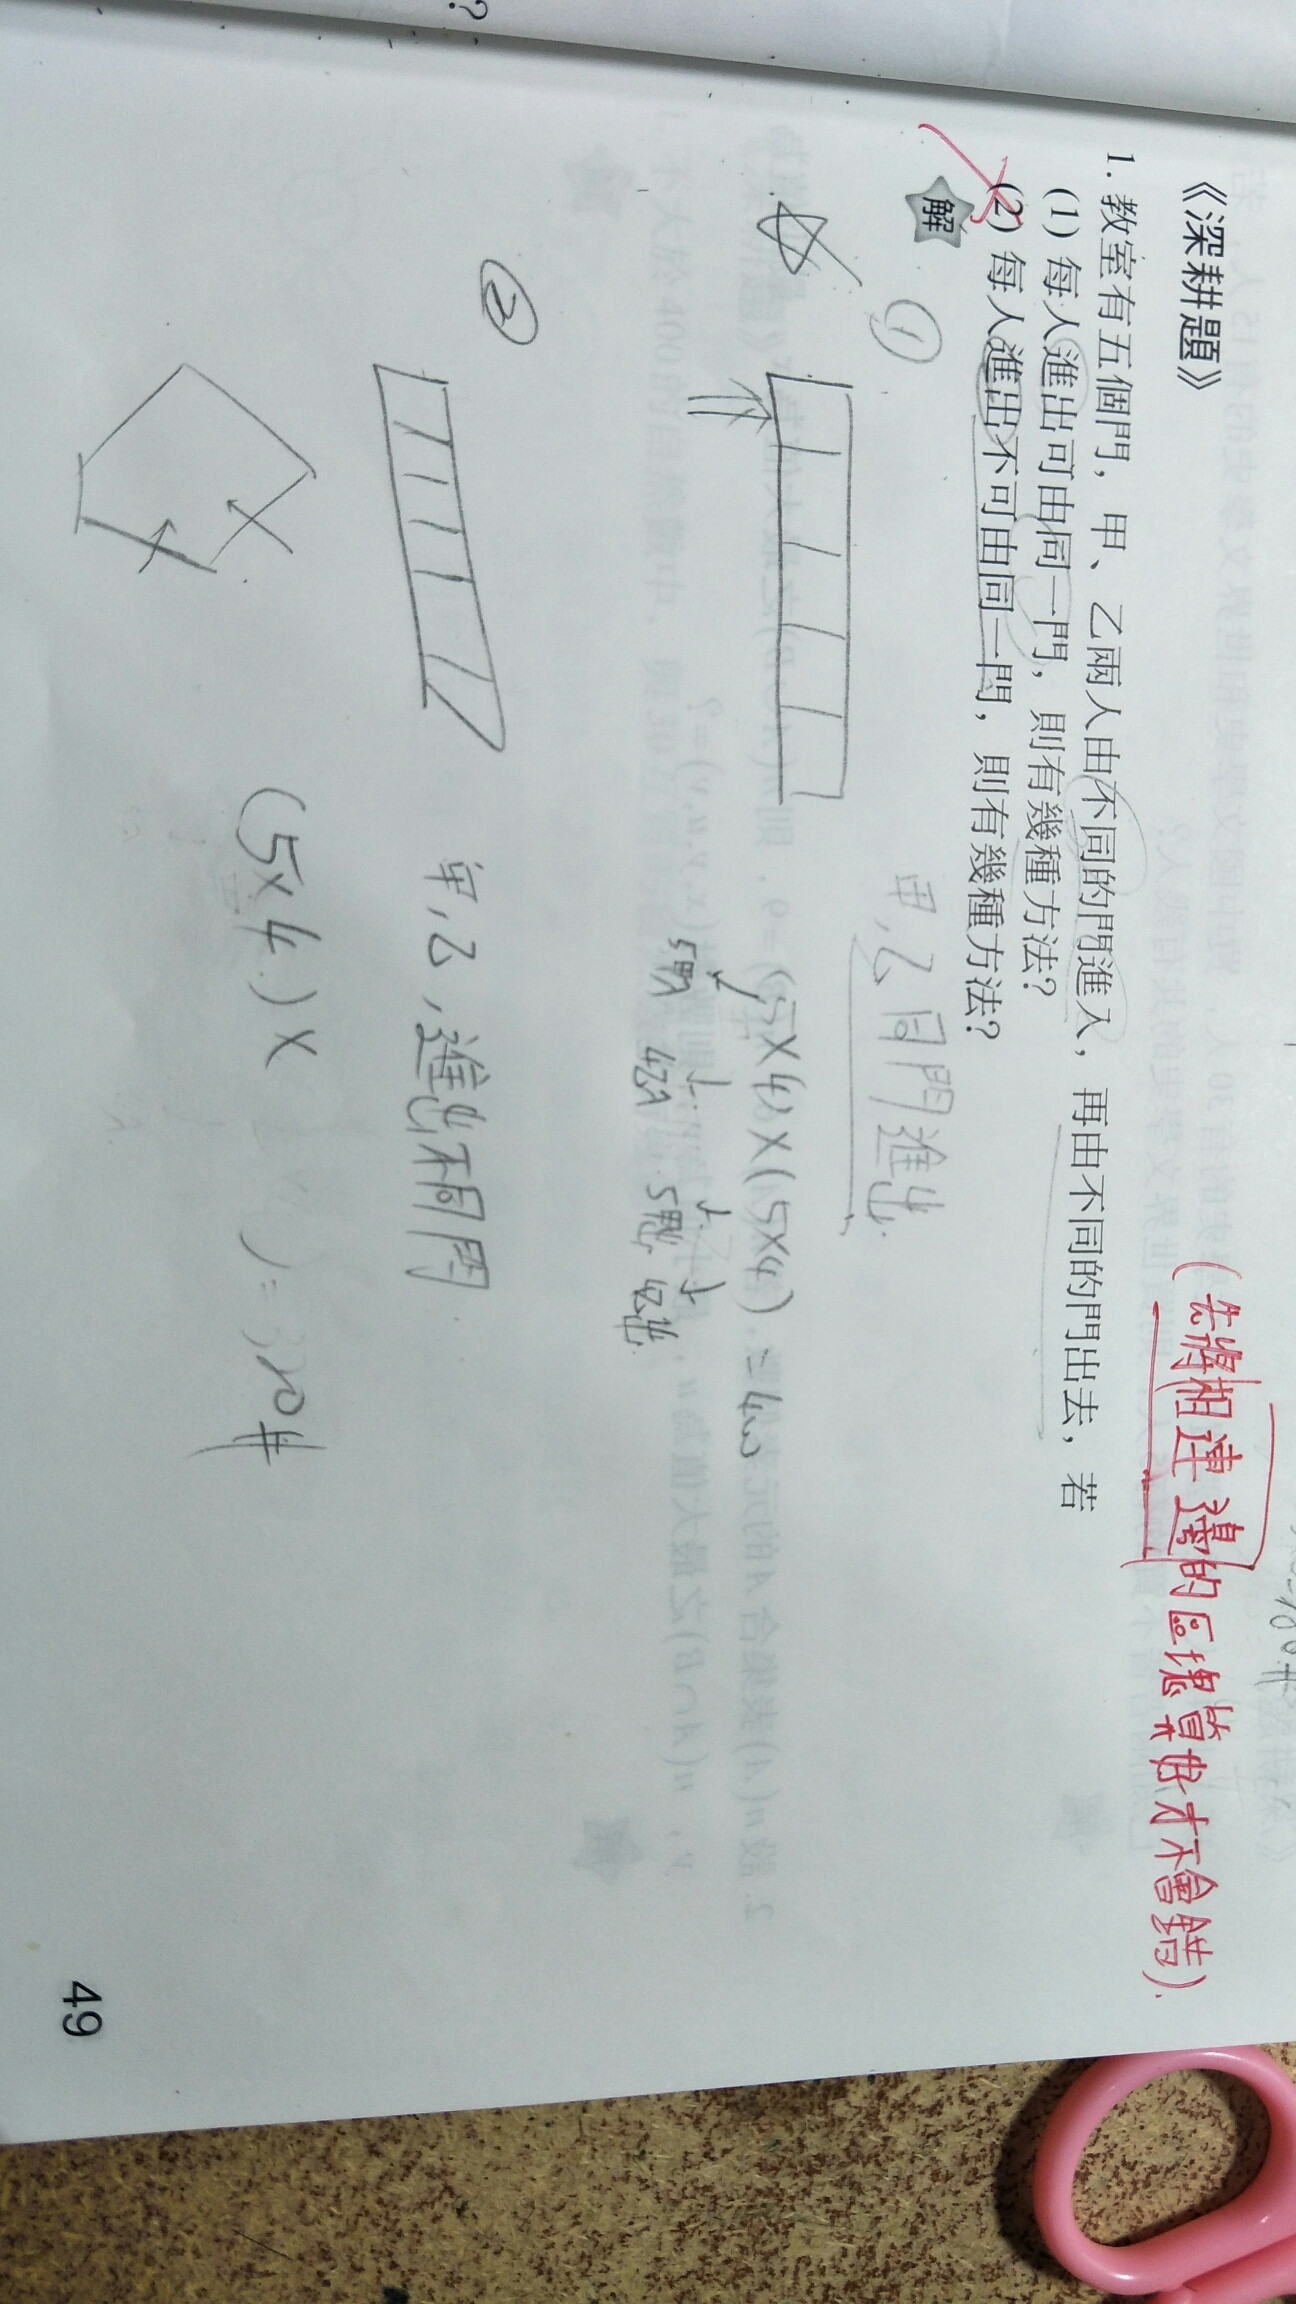 ?
《深耕題》
(先將相連邊的區塊算好才不會錯).
1. 教室有五個門，甲、乙兩人由不同的門進入，再由不同的門出去，若
(1) 每人進出可由同一門，則有幾種方法？
(2) 每人進出不可由同一門，則有幾種方法？
解
① 甲,乙同門進出
(5×4)×(5×4)=400
5甲入 4乙入 5甲出 4乙出
② 甲,乙,進出不同門
(5×4)×( )=320#
49